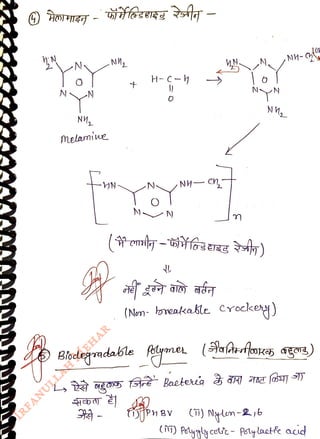 ④ मेलामाइन - फॉर्मेल्डिहाइड रेजीन -
H₂N N NH₂ + H-C-H → H₂N N NH-CH₂OH
N N O N N
NH₂ NH₂
Melamine
HN N NH-CH₂
N N n
(मैलामीन - फॉर्मेल्डिहाइड रेजीन)
या
नहीं टूटने वाले बर्तन
(Non-breakable crockery)
⑤ Biodegradable Polymer (जैवनिम्नीकारक बहुलक)
↳ ऐसे बहुलक जिन्हें Bacteria के द्वारा नष्ट किया जा
सकता है।
जैसे - (i) PHBV (ii) Nylon-2,6
(iii) Polyglycolic - Polylactic acid
IRFANULLAH MEHAR